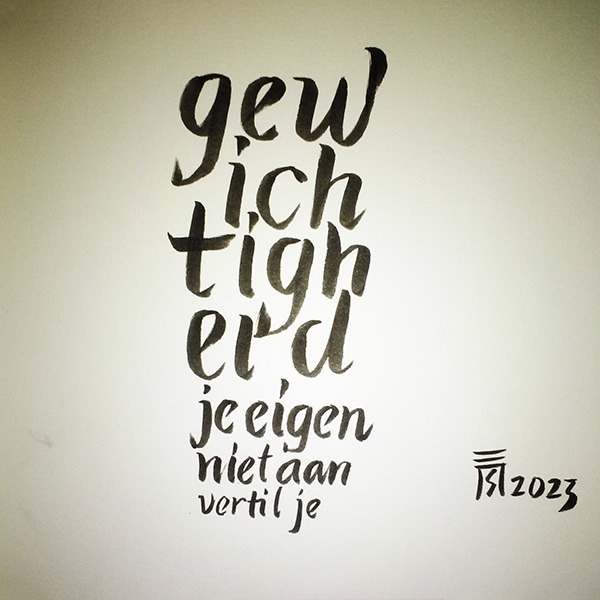 gew
ich
tigh
eid
je eigen
niet aan
vertil je
2023